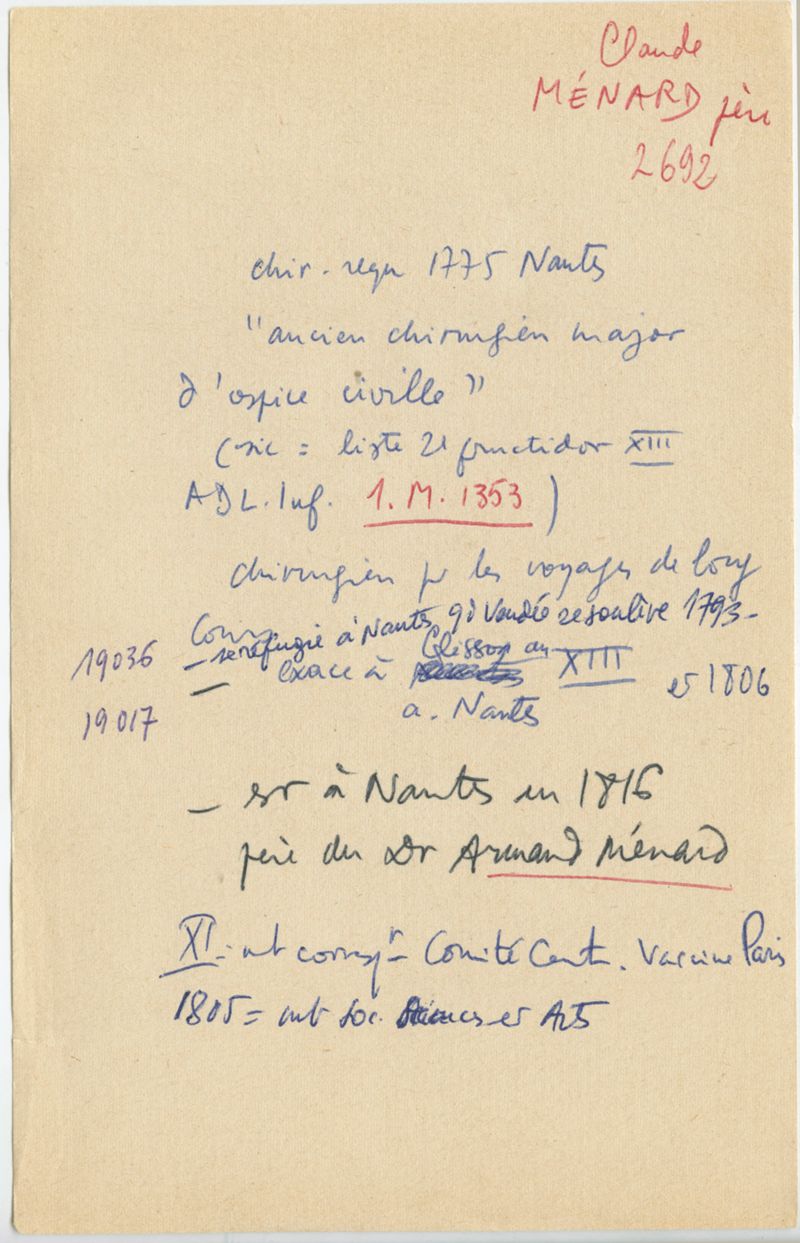 Claude
MÉNARD père
2692
chir. reçu 1775 Nantes
"ancien chirurgien major
d'ospice civille"
(sic = liste 21 fructidor XIII
ADL. Inf. 1. M. 1353)
chirurgien pr les voyages de long
Cours
19036 – se réfugie à Nantes qd Vendée 1793 –
– exace à Clisson an XIII et 1806
19017 a. Nantes
– est à Nantes en 1816
père du Dr Armand Ménard
XI = mb corresp^r Comité Cent. Vaccine Paris
1805 = mb Soc. Sciences et Arts